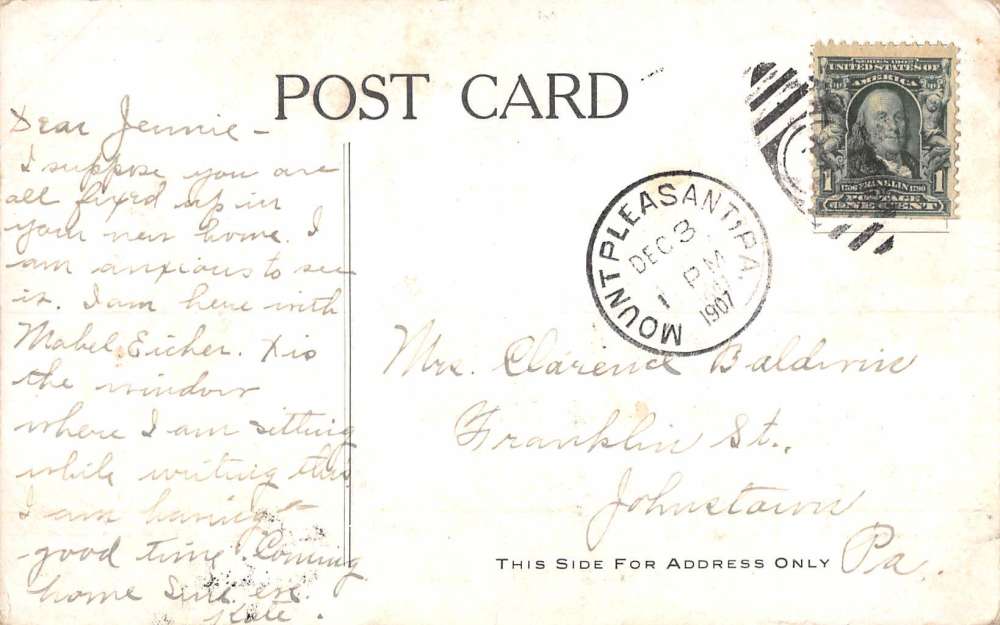 POST CARD
Dear Jennie –
I suppose you are
all fixed up in
your new home. I
am anxious to see
it. I am here with
Mabel Eicher. X is
the window
where I am sitting
while writing this
I am having
good time. Coming
home Sun. eve.
Kate.
SERIES 1902
UNITED STATES OF
AMERICA
1 1706 FRANKLIN 1790 1
POSTAGE
ONE CENT
MOUNT PLEASANT, PA.
DEC 3
1 PM
1907
Mrs. Clarence Baldwin
Franklin St.,
Johnstown
Pa.
THIS SIDE FOR ADDRESS ONLY